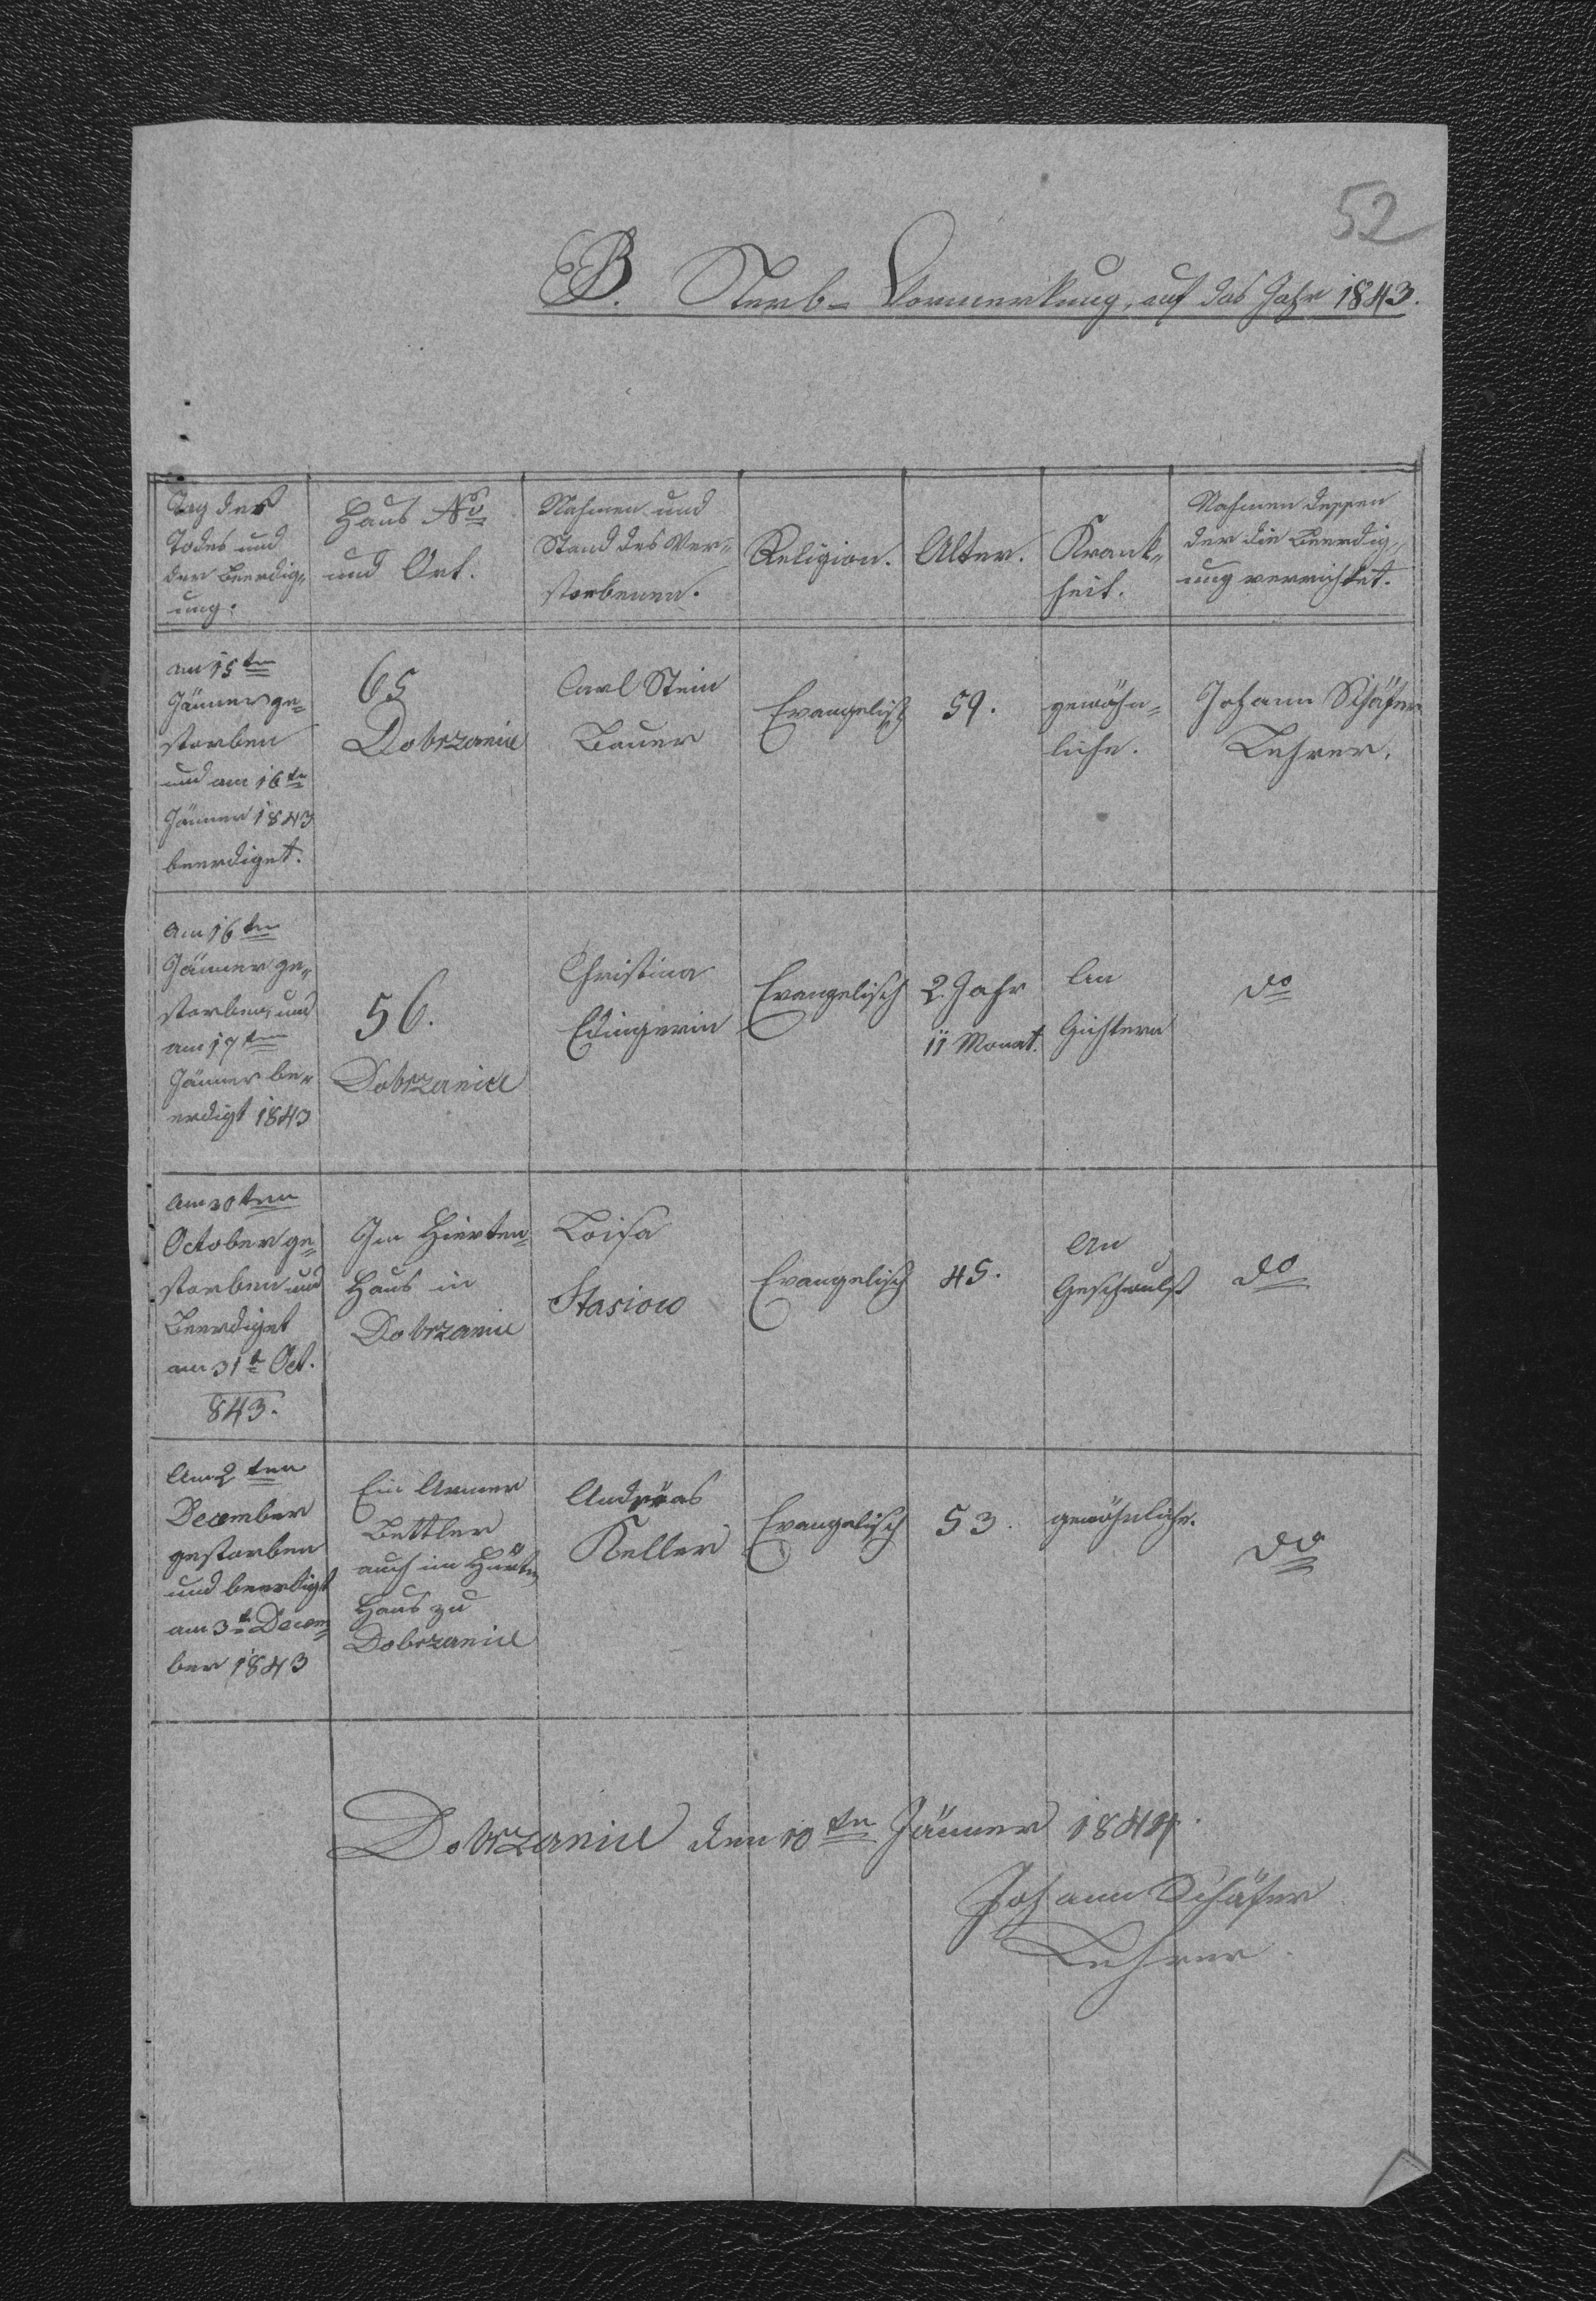 52
B. Sterb=Vormerkung, auf das Jahr 1843.
Tag des
Todes und
der Beerdig,,
ung.
Haus No
und Ort.
Nahmen und
Stand des Ver=
storbenen.
Religion.
Alter.
Krank,,
heit.
Nahmen dessen
der die Beerdig,,
ung verrichtet.
am 15ten
Jänner ge=
storben
und am 16ten
Jänner 1843
beerdiget.
65
Dobrzanice
Carl Stein
Bauer
Evangelisch
59.
gewöhn=
liche.
Johann Schäfer
Lehrer.
Am 16ten
Jänner ge,,
storben, und
am 17ten
Jänner be,,
erdigt 1843
56.
Dobrzanice
Christina
Edingerin
Evangelisch
2 Jahr
11 Monat.
An
Gichtern
do
Am 30ten
October ge=
storben und
Beerdiget
am 31t Oct.
843.
Im Hierten=
Haus in
Dobrzanice
Loisa
Stasiow
Evangelisch
45.
An
Geschwulst
do
Am 2ten
December
gestorben
und beerdigt
am 3t Decem=
ber 1843
Ein Armer
Bettler
auch im Hürten
Haus zu
Dobrzanice
Andreas
Keller
Evangelisch
53.
gewöhnliche.
do
Dobrzanice den 10ten Jänner 1844.
Johann Schäfer
Lehrer.